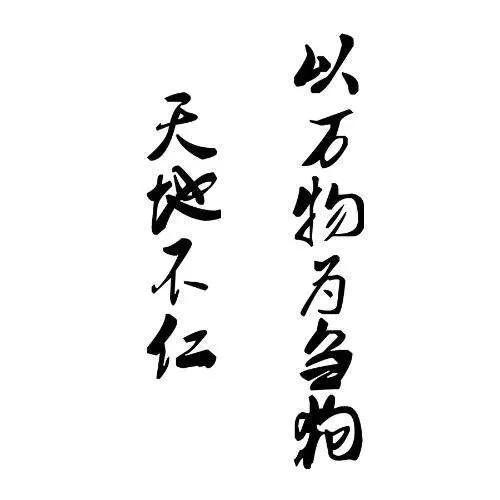 天地不仁
以万物为刍狗